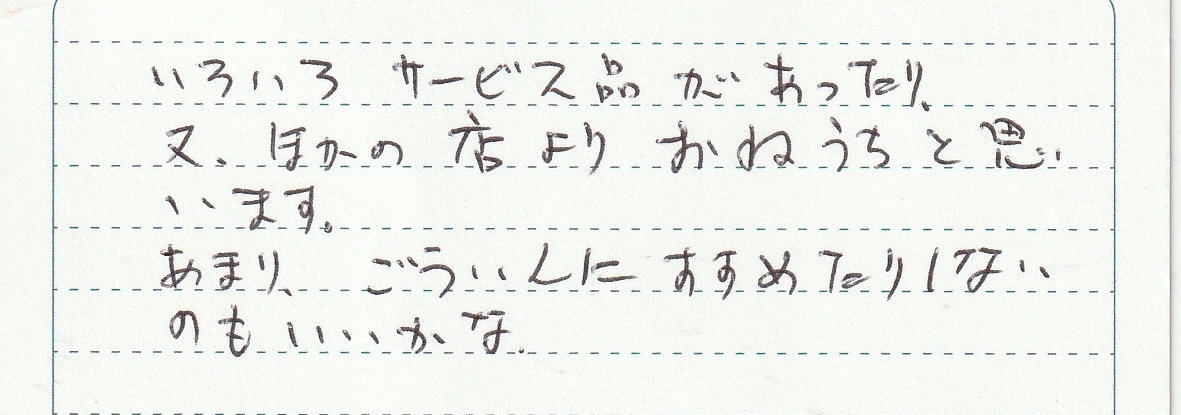 いろいろ サービス品 が あったり、
又、ほかの 店 より おねうち と 思
います。
あまり、ごういんに すすめたりしない
のも いいかな。